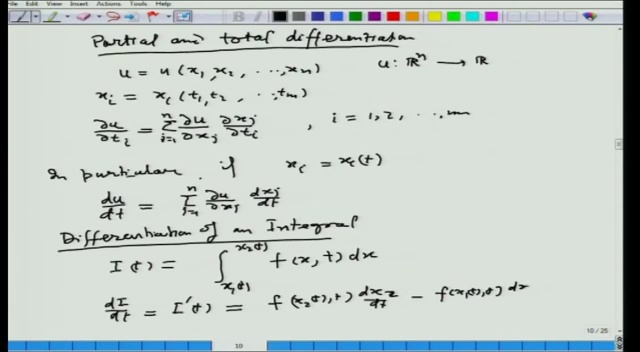 File Edit View Insert Actions Tools Help
Partial and total differentiation
u = u(x₁, x₂, ..., xₙ) u: ℝⁿ → ℝ
xᵢ = xᵢ(t₁, t₂, ..., tₘ)
∂u/∂tᵢ = Σⱼ₌₁ⁿ ∂u/∂xⱼ ∂xⱼ/∂tᵢ , i = 1, 2, ..., m
In particular, if xᵢ = xᵢ(t)
du/dt = Σⱼ₌₁ⁿ ∂u/∂xⱼ dxⱼ/dt
Differentiation of an Integral
I(t) = ∫_{x₁(t)}^{x₂(t)} f(x, t) dx
dI/dt = I'(t) = f(x₂(t), t) dx₂/dt - f(x₁(t), t) dx
10 / 25
10